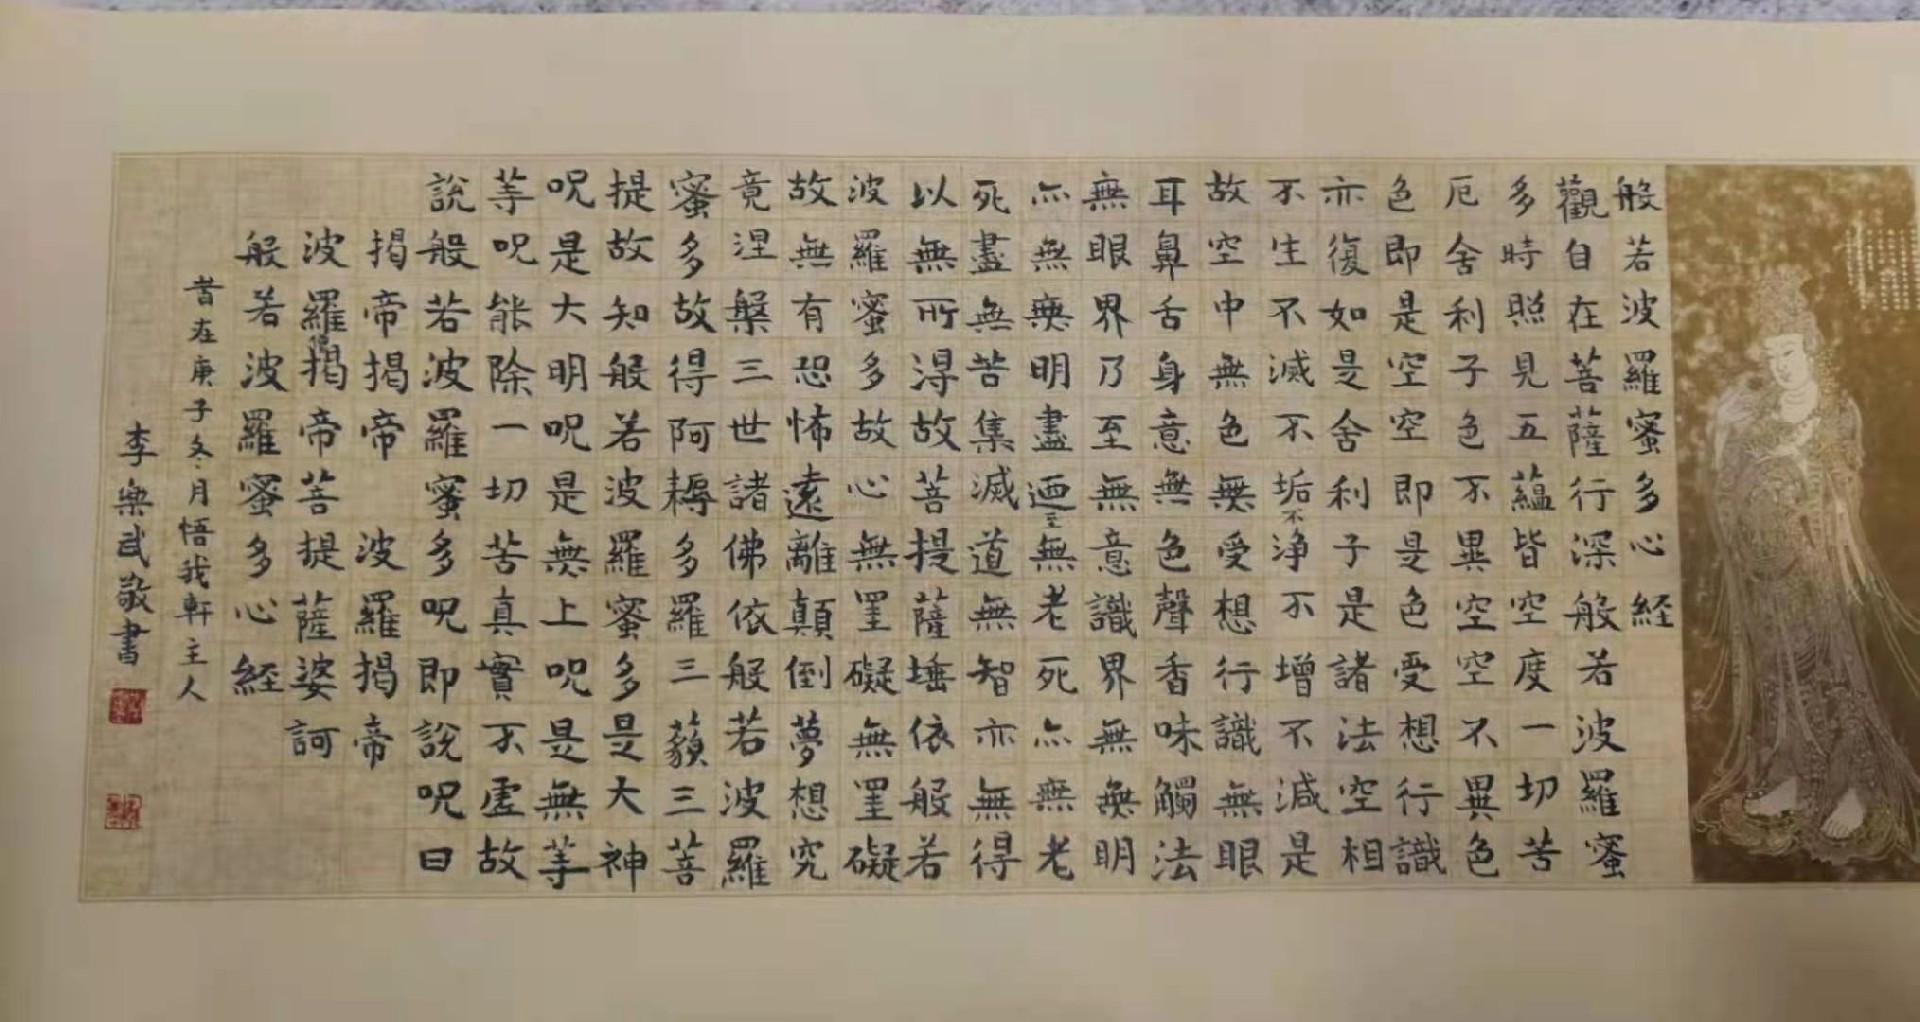 般若波羅蜜多心経
觀自在菩薩行深般若波羅蜜
多時照見五蘊皆空度一切苦
厄舍利子色不異空空不異色
色即是空空即是色受想行識
亦復如是舍利子是諸法空相
不生不滅不垢不净不增不減是
故空中無色無受想行識無眼
耳鼻舌身意無色聲香味觸法
無眼界乃至無意識界無無明
亦無無明盡迺至無老死亦無老
死盡無苦集滅道無智亦無得
以無所得故菩提薩埵依般若
波羅蜜多故心無罣礙無罣礙
故無有恐怖遠離顛倒夢想究
竟涅槃三世諸佛依般若波羅
蜜多故得阿耨多羅三藐三菩
提故知般若波羅蜜多是大神
呪是大明呪是無上呪是無等
等呪能除一切苦真實不虛故
說般若波羅蜜多呪即說呪曰
揭帝揭帝 波羅揭帝
波羅僧揭帝菩提薩婆訶
般若波羅蜜多心経
昔在庚子冬月悟我軒主人
李樂武敬書